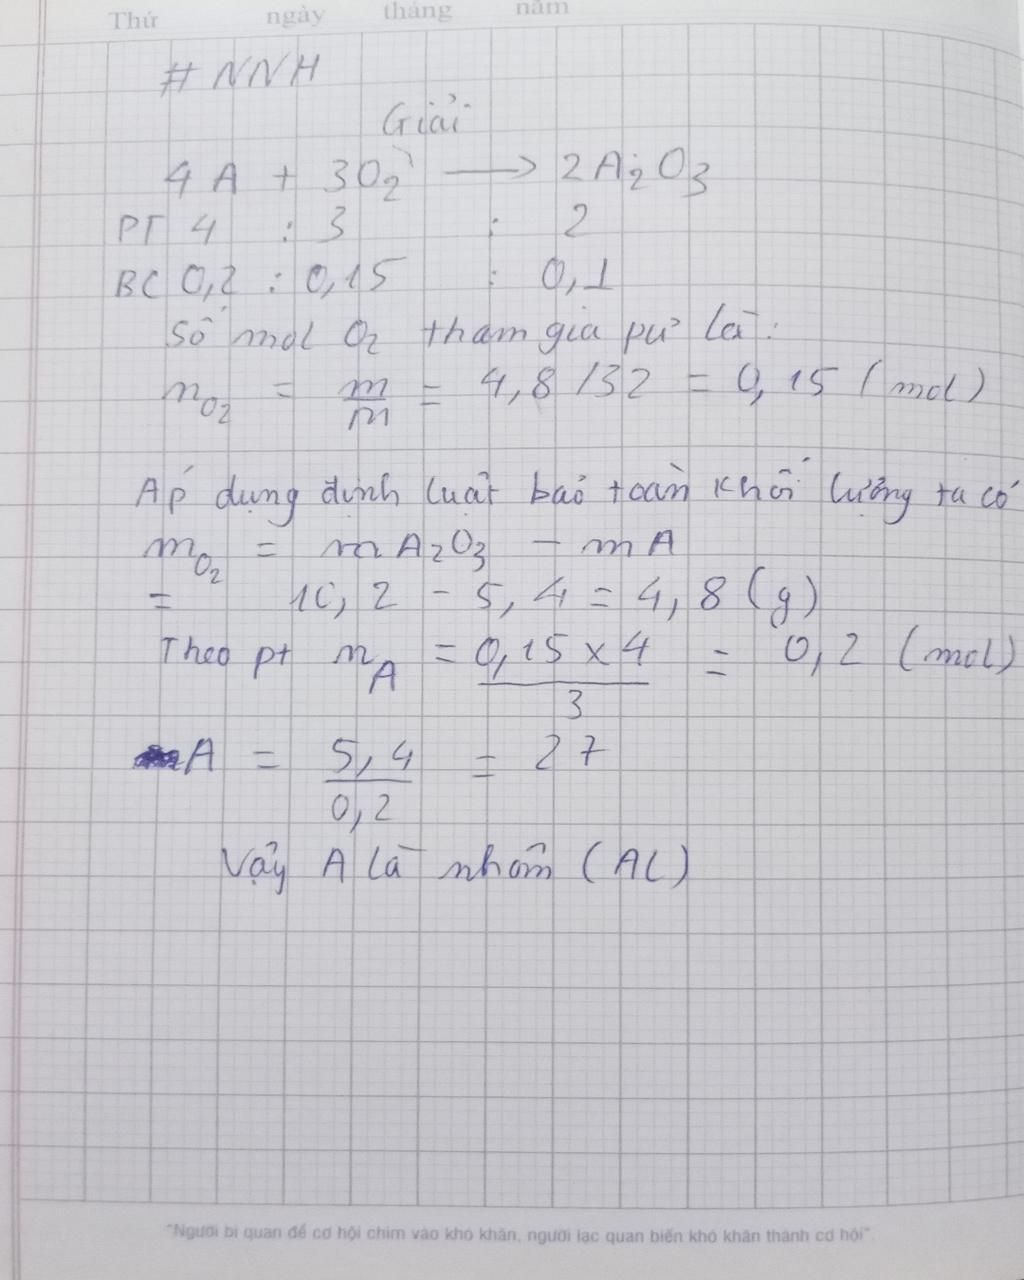 Thứ ngày tháng năm
# NNH
Giải
4A + 3O₂ → 2A₂O₃
PT 4 : 3 : 2
BC 0,2 : 0,15 : 0,1
Số mol O₂ tham gia pư là:
nO₂ = m/m = 4,8/32 = 0,15 (mol)
Áp dụng định luật bảo toàn khối lượng ta có
mO₂ = mA₂O₃ - mA
= 10,2 - 5,4 = 4,8 (g)
Theo pt nA = 0,15 x 4 / 3 = 0,2 (mol)
A = 5,4 / 0,2 = 27
Vậy A là nhôm (Al)
"Người bi quan để cơ hội chìm vào khó khăn, người lạc quan biến khó khăn thành cơ hội".